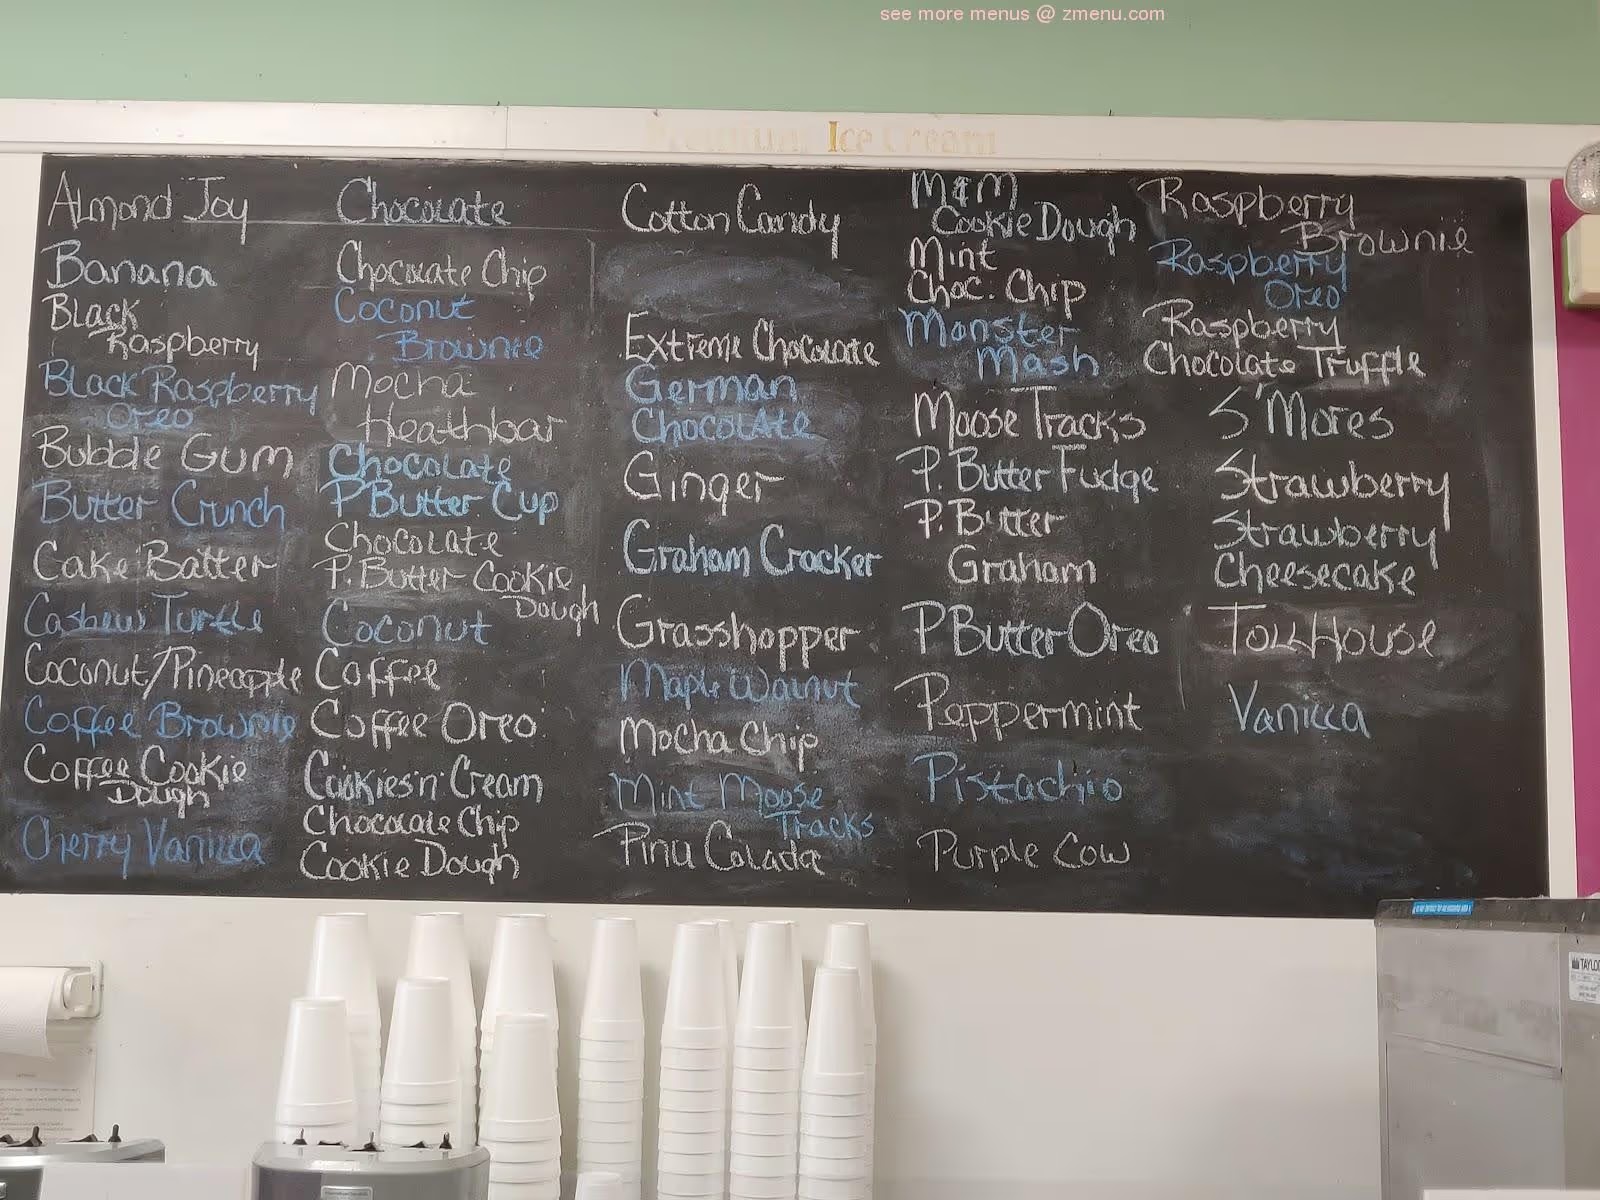 see more menus @ zmenu.com
Premium Ice Cream
Almond Joy
Banana
Black
Raspberry
Black Raspberry
Oreo
Bubble Gum
Butter Crunch
Cake Batter
Cashew Turtle
Coconut/Pineapple
Coffee Brownie
Coffee Cookie
Dough
Cherry Vanilla
Chocolate
Chocolate Chip
Coconut
Brownie
Mocha
Heathbar
Chocolate
P Butter Cup
Chocolate
P. Butter Cookie
Dough
Coconut
Coffee
Coffee Oreo
Cookies n' Cream
Chocolate Chip
Cookie Dough
Cotton Candy
Extreme Chocolate
German
Chocolate
Ginger
Graham Cracker
Grasshopper
Maple Walnut
Mocha Chip
Mint Moose
Tracks
Pinu Colada
M&M
Cookie Dough
Mint
Choc. Chip
Monster
Mash
Moose Tracks
P. Butter Fudge
P. Butter
Graham
P Butter Oreo
Peppermint
Pistachio
Purple Cow
Raspberry
Brownie
Raspberry
Oreo
Raspberry
Chocolate Truffle
S'Mores
Strawberry
Strawberry
Cheesecake
TollHouse
Vanilla
TAYLOR